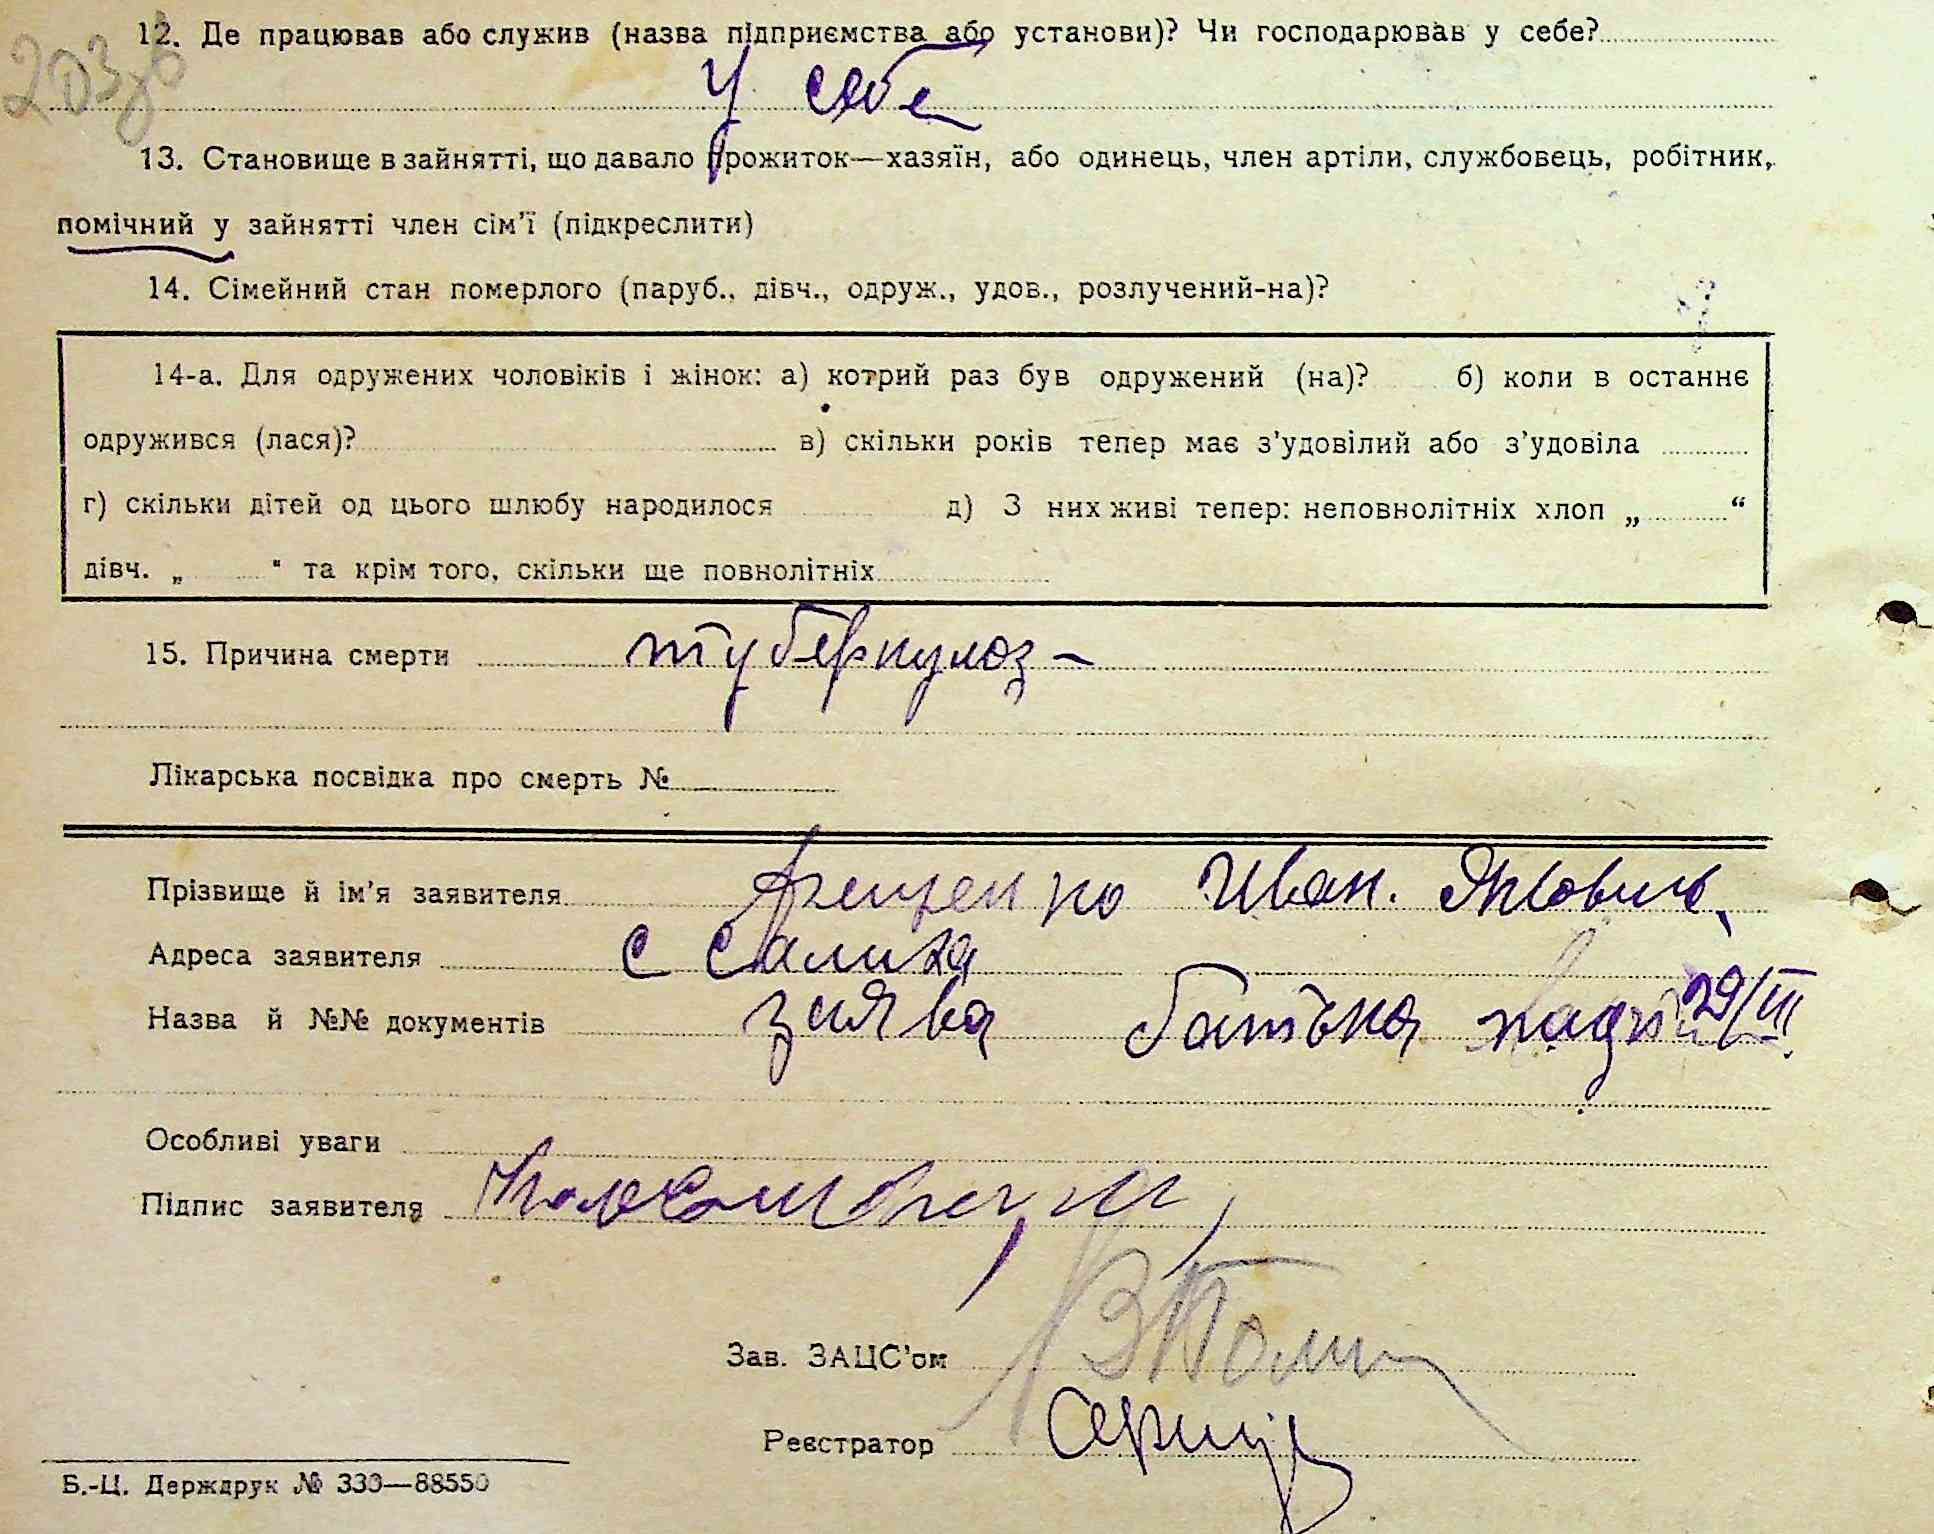 12. Де працював або служив (назва підприємства або установи)? Чи господарював у себе?
У себе
13. Становище в зайнятті, що давало прожиток—хазяїн, або одинець, член артіли, службовець, робітник,
помічний у зайнятті член сім'ї (підкреслити)
14. Сімейний стан померлого (паруб., дівч., одруж., удов., розлучений-на)?
14-а. Для одружених чоловіків і жінок: а) котрий раз був одружений (на)? б) коли в останнє
одружився (лася)? в) скільки років тепер має з'удовілий або з'удовіла
г) скільки дітей од цього шлюбу народилося д) З них живі тепер: неповнолітніх хлоп „ “
дівч. „ “ та крім того, скільки ще повнолітніх
15. Причина смерти туберкулоз –
Лікарська посвідка про смерть №
Прізвище й ім'я заявителя Иван.
Адреса заявителя с
Назва й №№ документів заява батька 29/III
Особливі уваги
Підпис заявителя
Зав. ЗАЦС'ом
Реєстратор
Б.-Ц. Держдрук № 330—88550